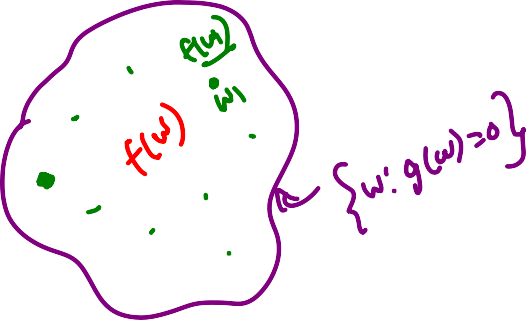 f(w₁)
w₁
f(w)
{w: g(w)=0}